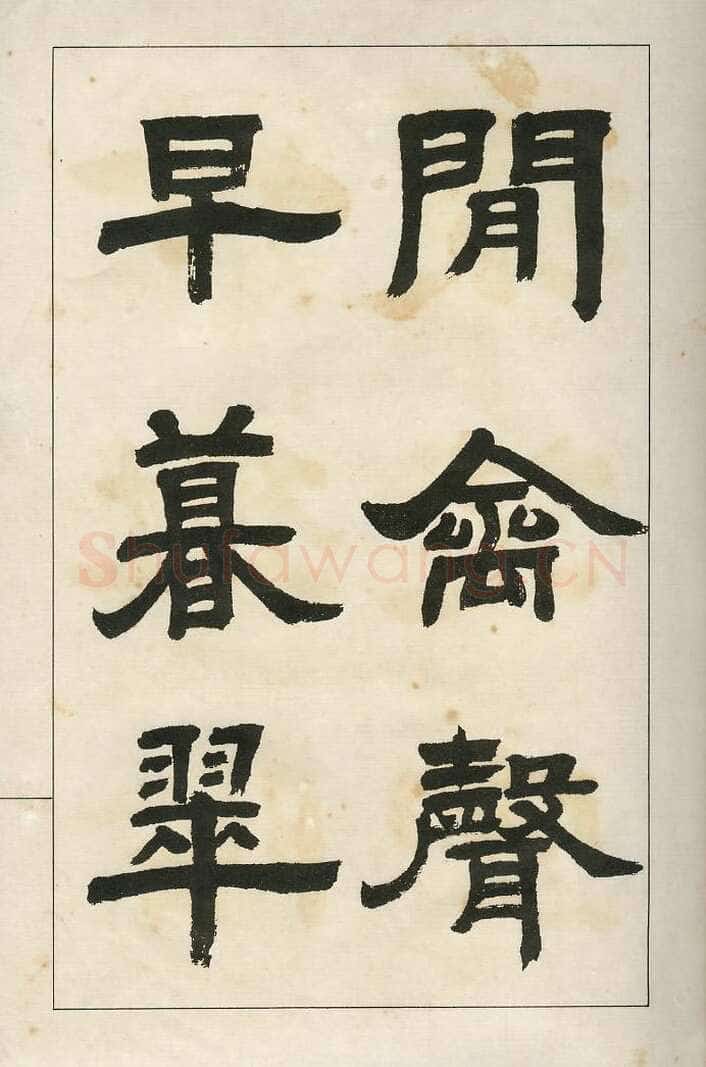 閒禽聲
早暮翠
Shufawang.CN